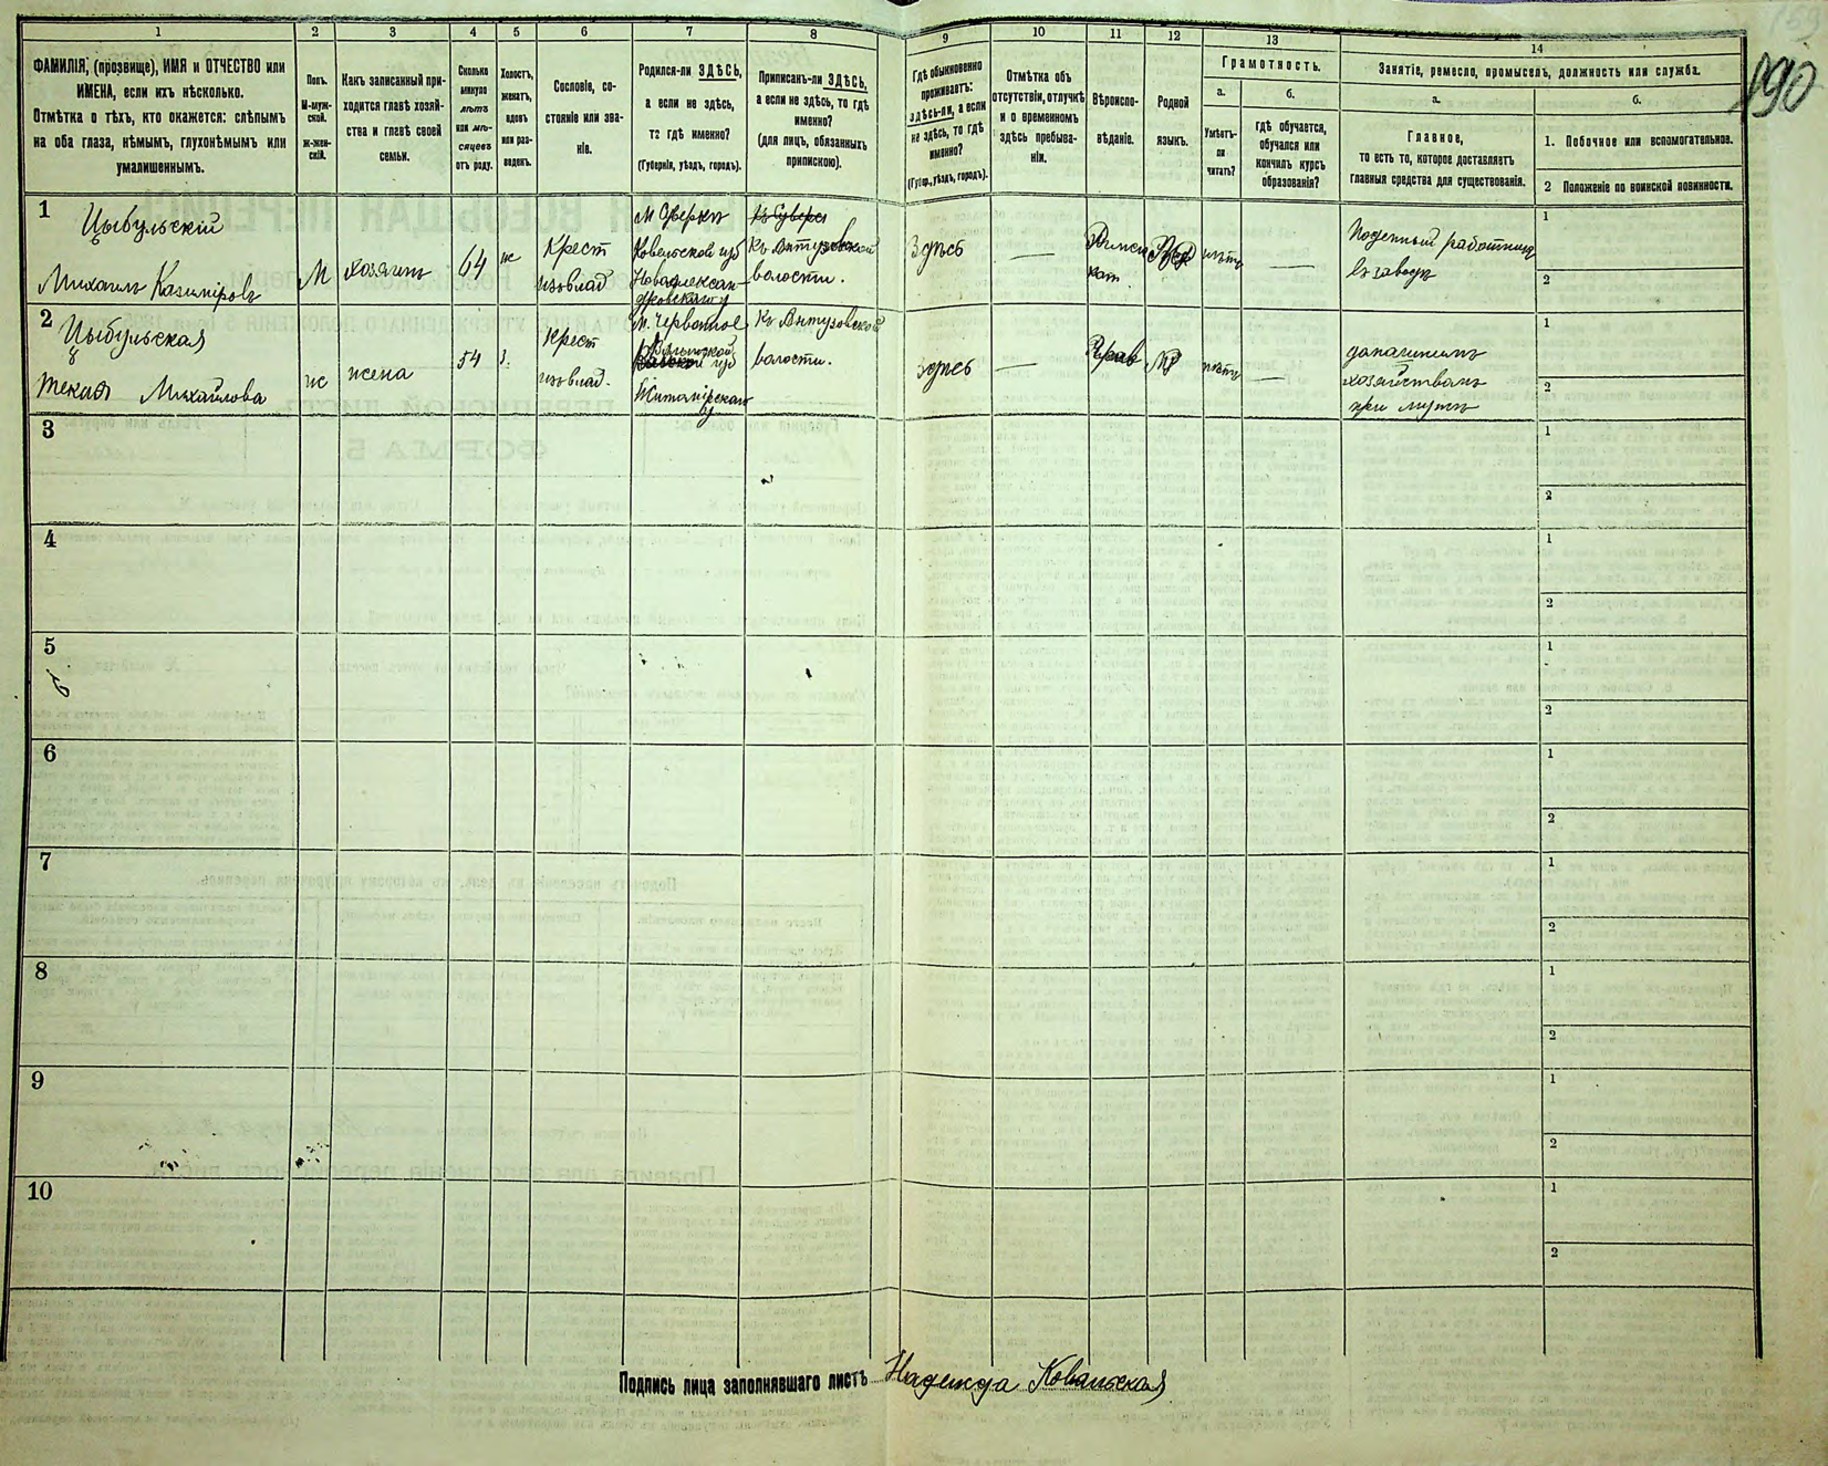 1
2
3
4
5
6
7
8
9
10
11
12
13
14
ФАМИЛІЯ, (прозвище), ИМЯ и ОТЧЕСТВО или
ИМЕНА, если ихъ нѣсколько.
Отмѣтка о тѣхъ, кто окажется: слѣпымъ
на оба глаза, нѣмымъ, глухонѣмымъ или
умалишеннымъ.
Полъ.
М-муж-
ской.
ж-жен-
скій.
Какъ записанный при-
ходится главѣ хозяй-
ства и главѣ своей
семьи.
Сколько
минуло
лѣтъ
или мѣ-
сяцевъ
отъ роду.
Холостъ,
женатъ,
вдовъ
или раз-
веденъ.
Сословіе, со-
стояніе или зва-
ніе.
Родился-ли ЗДѢСЬ,
а если не здѣсь,
то гдѣ именно?
(Губернія, уѣздъ, городъ).
Приписанъ-ли ЗДѢСЬ,
а если не здѣсь, то гдѣ
именно?
(для лицъ, обязанныхъ
припискою).
Гдѣ обыкновенно
проживаетъ:
здѣсь-ли, а если
не здѣсь, то гдѣ
именно?
(Губер., уѣздъ, городъ).
Отмѣтка объ
отсутствіи, отлучкѣ
и о временномъ
здѣсь пребыва-
ніи.
Вѣроиспо-
вѣданіе.
Родной
языкъ.
Грамотность.
а.
б.
Умѣетъ-
ли
читать?
гдѣ обучается,
обучался или
кончилъ курсъ
образованія?
Занятіе, ремесло, промыселъ, должность или служба.
а.
б.
Главное,
то есть то, которое доставляетъ
главныя средства для существованія.
1. Побочное или вспомогательное.
2 Положеніе по воинской повинности.
190
1
Цыбульскій
Михаилъ Казиміровъ
М
хозяинъ
64
ж
Крест
изъ влад
Ковельской губ
Новоалексан
дровскаго у
къ Антузовской
волости.
Здѣсь
—
Римск
кат.
нѣтъ
—
Поденный работникъ
въ заводѣ
1
2
2
Цыбульская
Текля Михайлова
ж
жена
54
з.
Крест
изъ влад.
м. Червоное
Волынской
губ
Житомірскаго
у
къ Антузовской
волости.
Здѣсь
—
Прав
нѣтъ
—
хозяйствомъ
при мужѣ
1
2
3
1
2
4
1
2
5
1
2
6
1
2
7
1
2
8
1
2
9
1
2
10
1
2
Подпись лица заполнявшаго листъ Надежда Ковальская